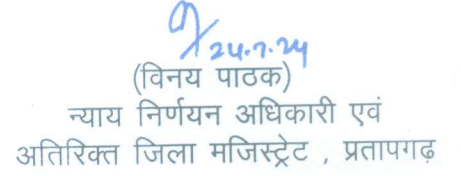 24.7.24
(विनय पाठक)
न्याय निर्णयन अधिकारी एवं
अतिरिक्त जिला मजिस्ट्रेट , प्रतापगढ़